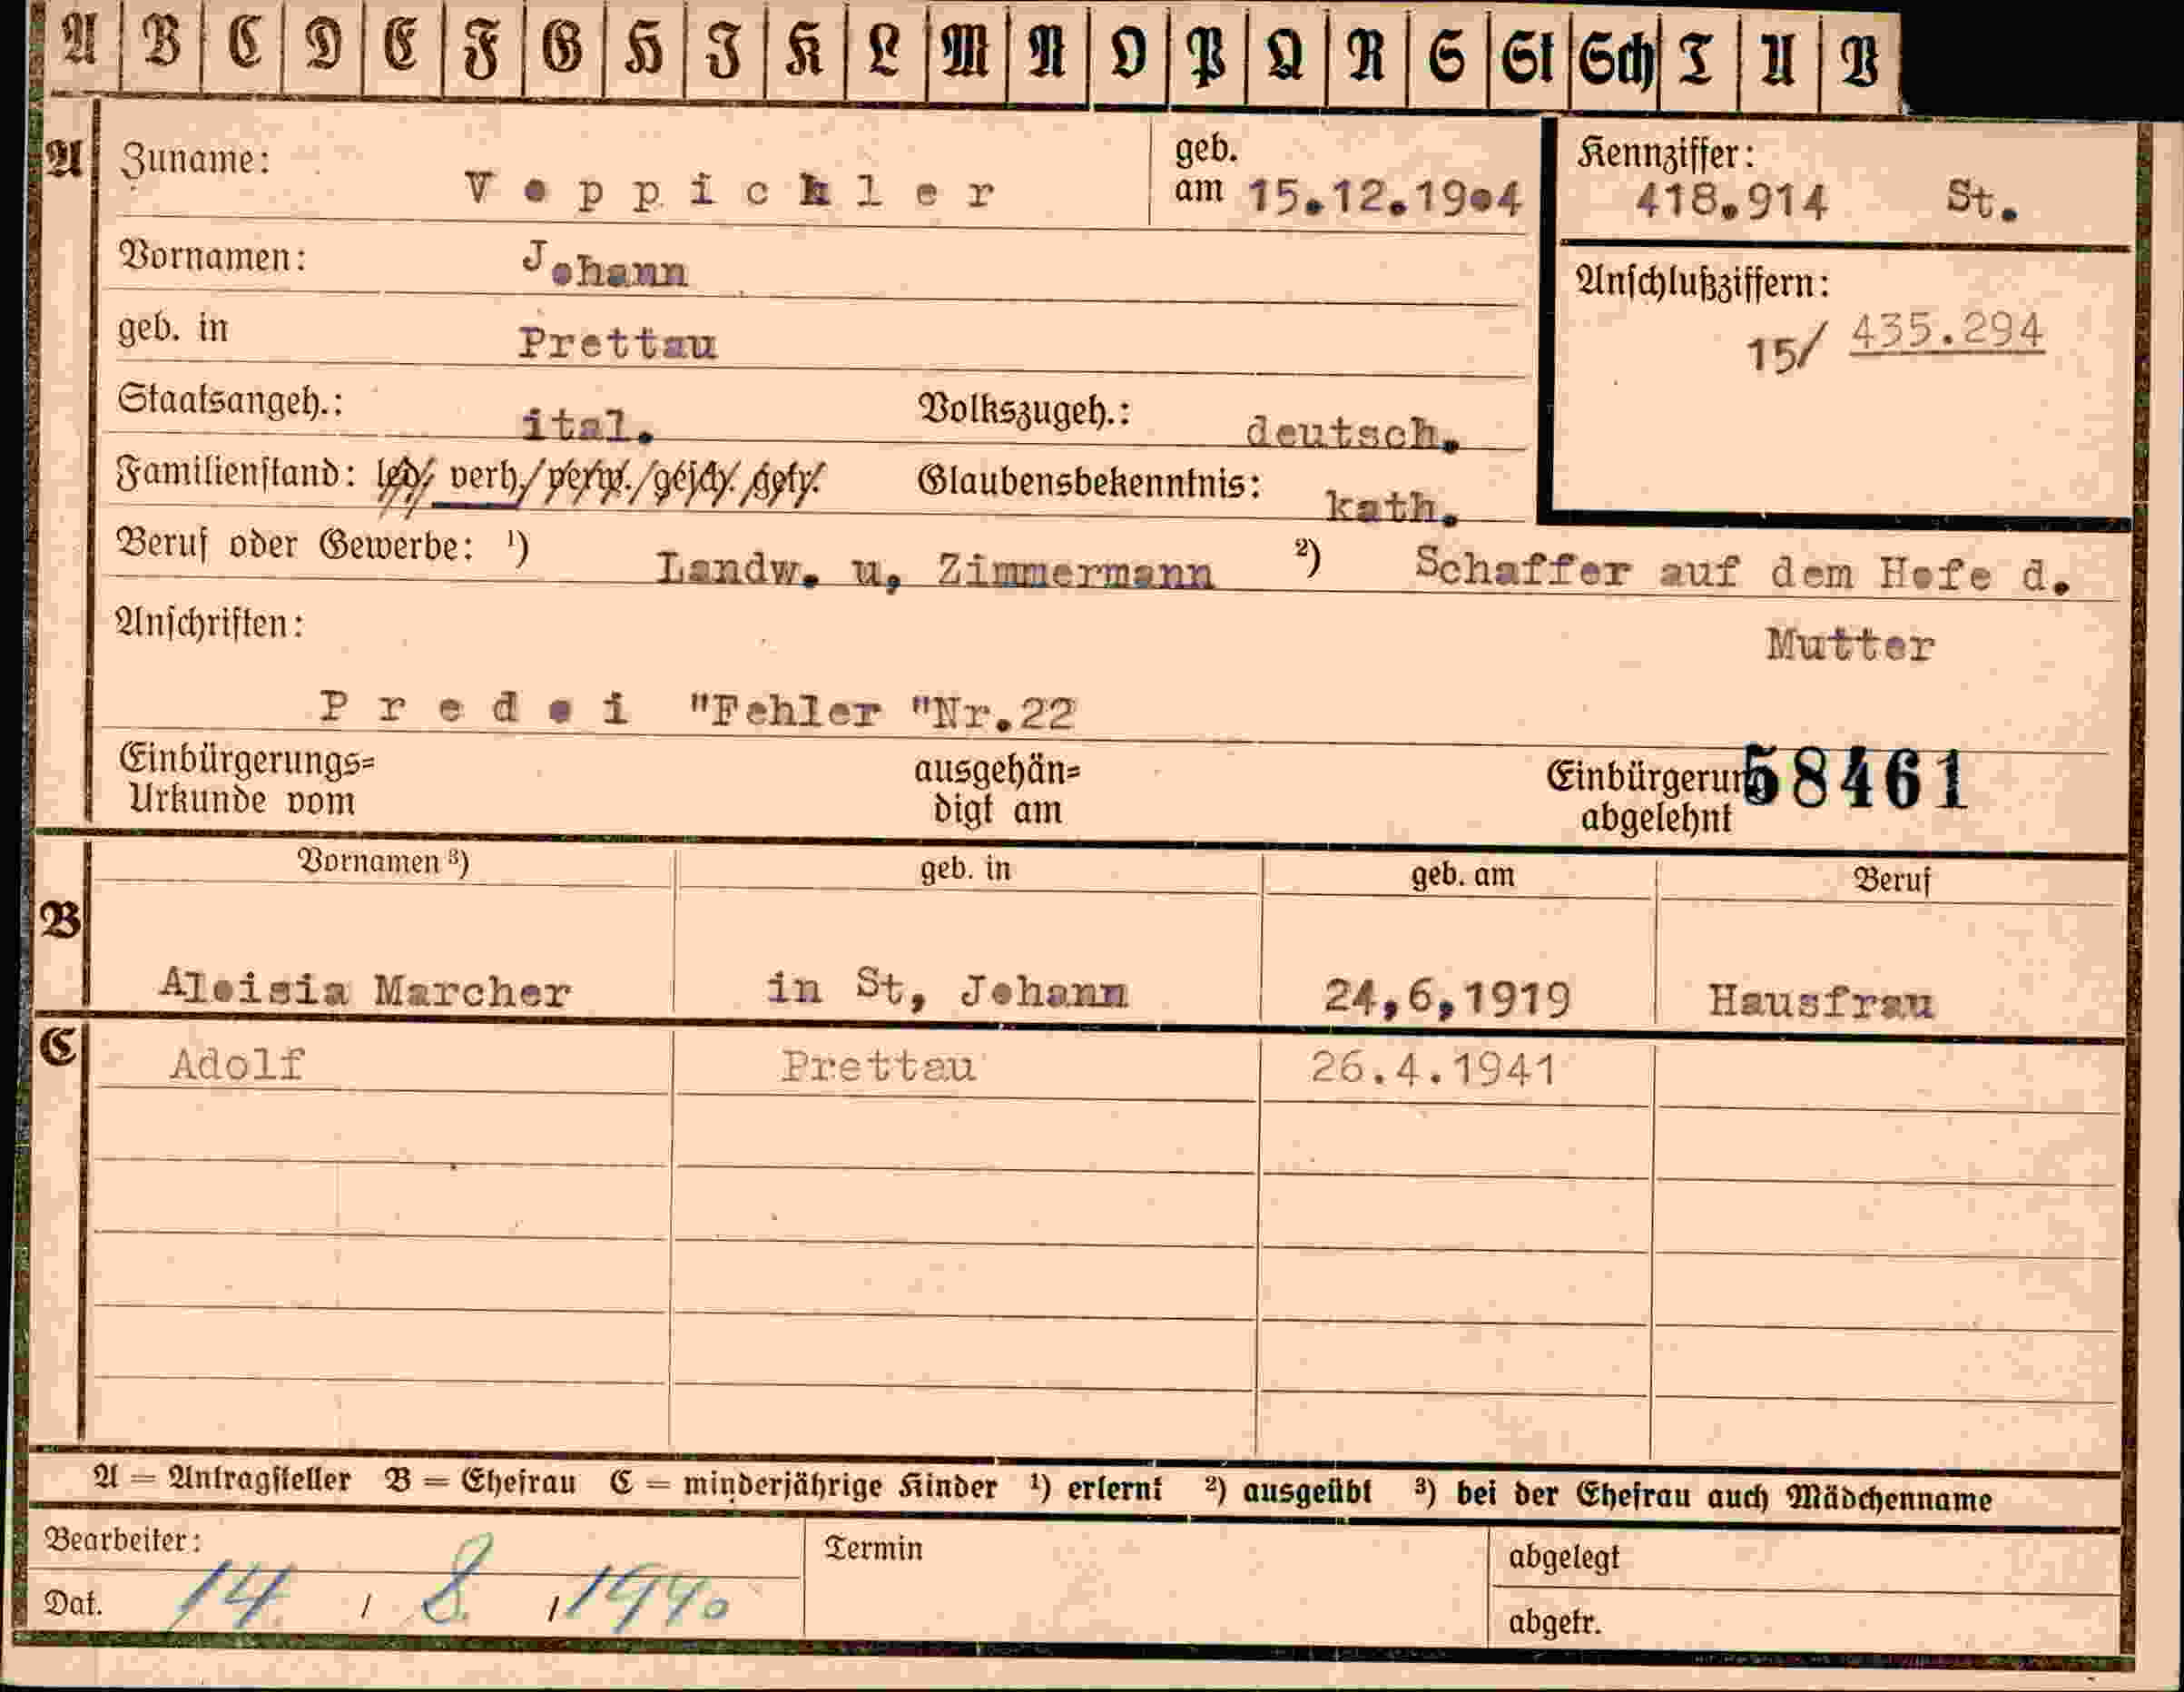 A B C D E F G H J K L M N O P Q R S St Sch T U V
A Zuname: Voppichler geb. am 15.12.19o4 Kennziffer: 418.914 St.
Vornamen: Johann
Anschlußziffern:
15/ 435.294
geb. in Prettau
Staatsangeh.: ital. Volkszugeh.: deutsch.
Familienstand: led./ verh./ verw./ gesch./ getr. Glaubensbekenntnis: kath.
Beruf oder Gewerbe: ¹) Landw. u, Zimmermann ²) Schaffer auf dem Hofe d.
Mutter
Anschriften:
P r e d o i "Fehler "Nr.22
Einbürgerungs= ausgehän= Einbürgerung 58461
Urkunde vom digt am abgelehnt
Vornamen ³) geb. in geb. am Beruf
B
Aloisia Marcher in St, Johann 24,6,1919 Hausfrau
C Adolf Prettau 26.4.1941
A = Antragsteller B = Ehefrau C = minderjährige Kinder ¹) erlernt ²) ausgeübt ³) bei der Ehefrau auch Mädchenname
Bearbeiter: Termin abgelegt
Dat. 14 / 8 / 1940 abgetr.